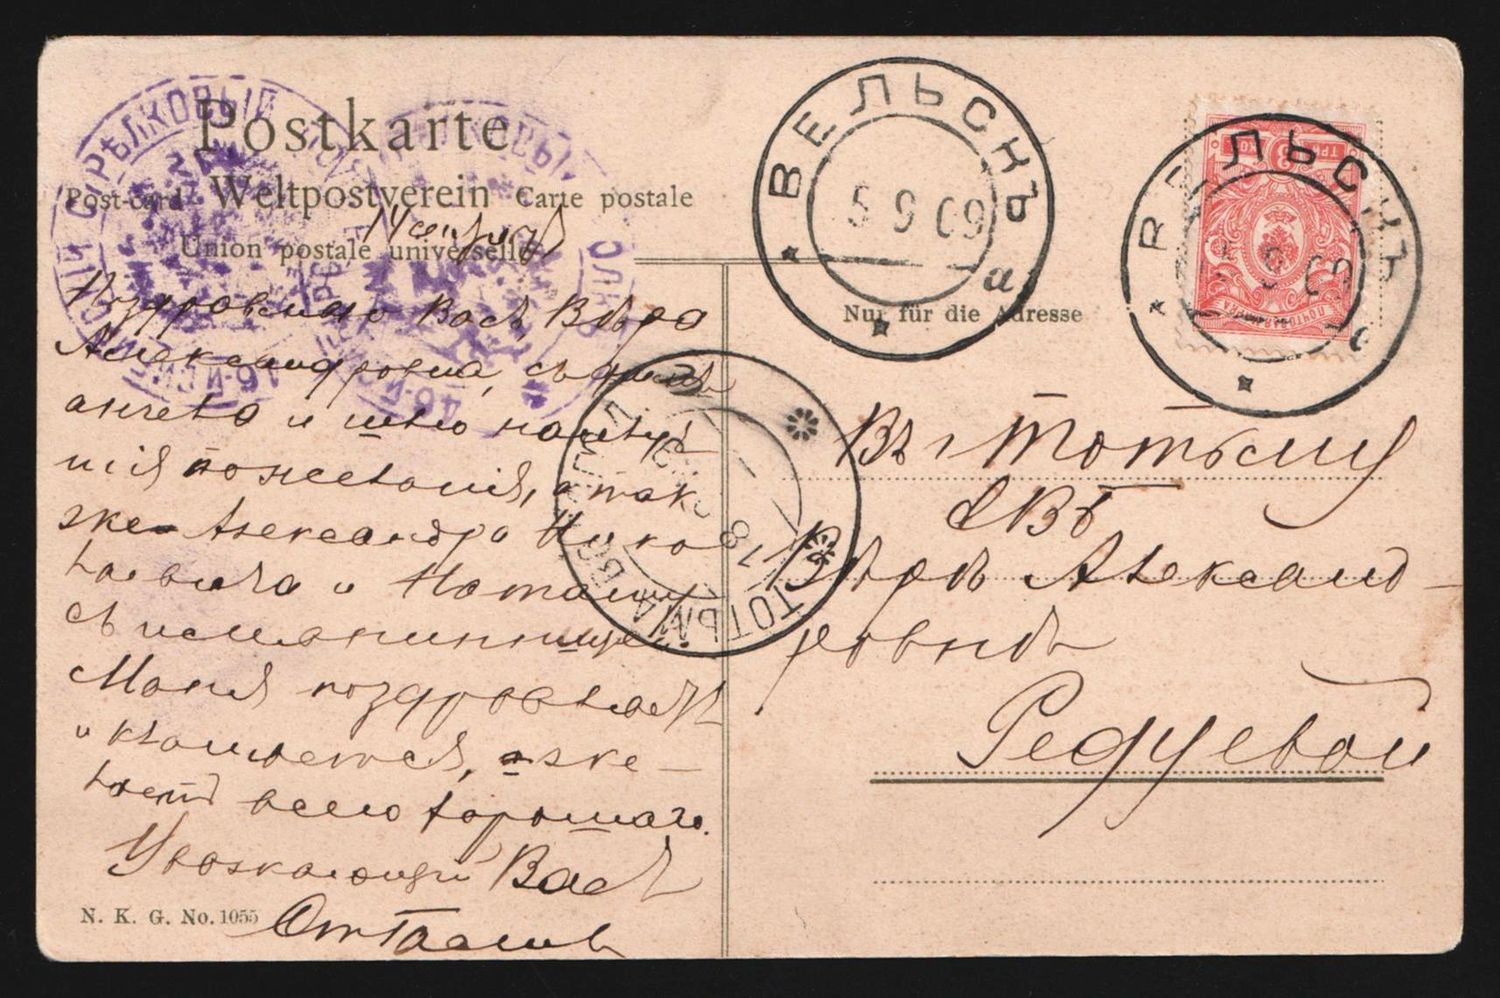 Postkarte
Post-card Weltpostverein Carte postale
Union postale universelle
Nur für die Adresse
ВЕЛЬСКЪ
5 9 09
а
ВЕЛЬСКЪ
9 09
а
ТРИ КОП
ПОЧТОВАЯ МАРКА
СТРѢЛКОВЫЙ
46-Й
ТОТЬМА ВОЛОГ
Поздравляю Васъ Вѣра
Александровна, съ днемъ
ангела и шлю наилуч
шія пожеланія, а так
же Александра Нико
лаевича и Наташу
съ имянинницей
Маня поздравляетъ
и кланяется, же
лаетъ всего хорошаго.
Уважающій Васъ
Въ г Тотьму
ЕВБ
Вѣрѣ Александ-
ровнѣ
Редуевой
N. K. G. No. 1055